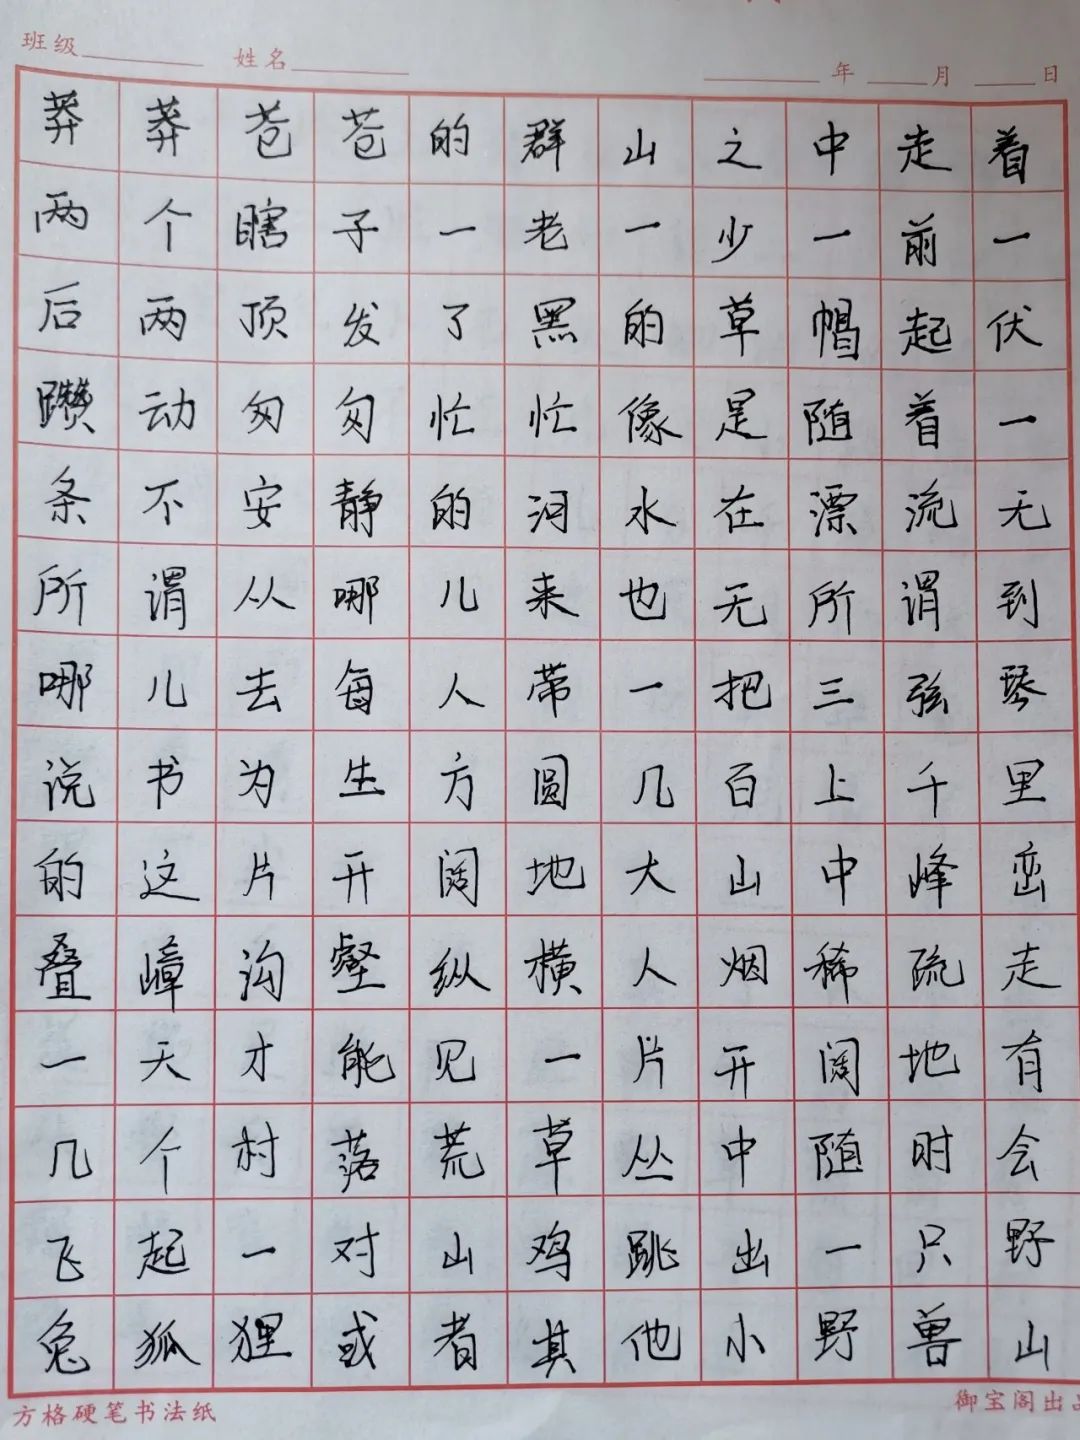 班级 姓名 年 月 日
莽莽苍苍的群山之中走着
两个瞎子一老一少一前一
后两顶发了黑的草帽起伏
躜动匆匆忙忙像是随着一
条不安静的河水在漂流无
所谓从哪儿来也无所谓到
哪儿去每人带一把三弦琴
说书为生方圆几百上千里
的这片开阔地大山中峰峦
叠嶂沟壑纵横人烟稀疏走
一天才能见一片开阔地有
几个村落荒草丛中随时会
飞起一对山鸡跳出一只野
兔狐狸或者其他小野兽山
方格硬笔书法纸 御宝阁出品